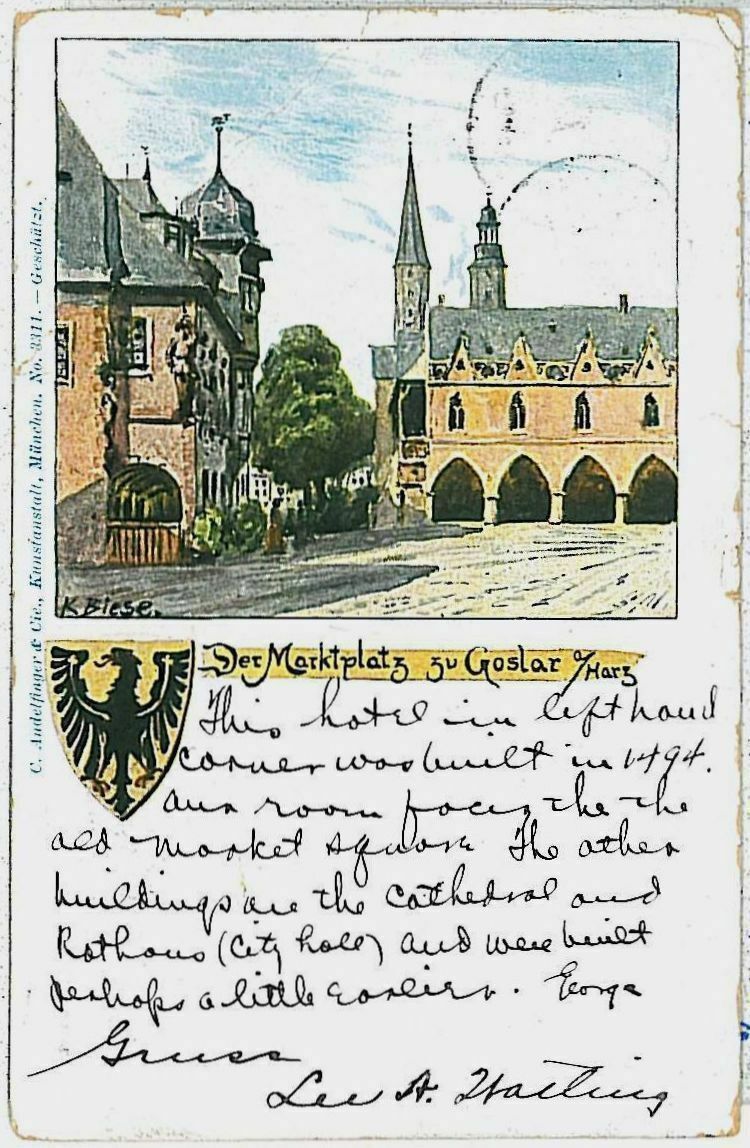 C. Andelfinger & Cie., Kunstanstalt, München. No. 3311. — Geschützt.
K Biese.
Der Marktplatz zu Goslar a/Harz
This hotel in left hand
corner was built in 1494.
our room faces the the
old market square The other
buildings are the Cathedral and
Rathaus (City hall) and were built
perhaps a little earlier. George
Gruss
Lee A.